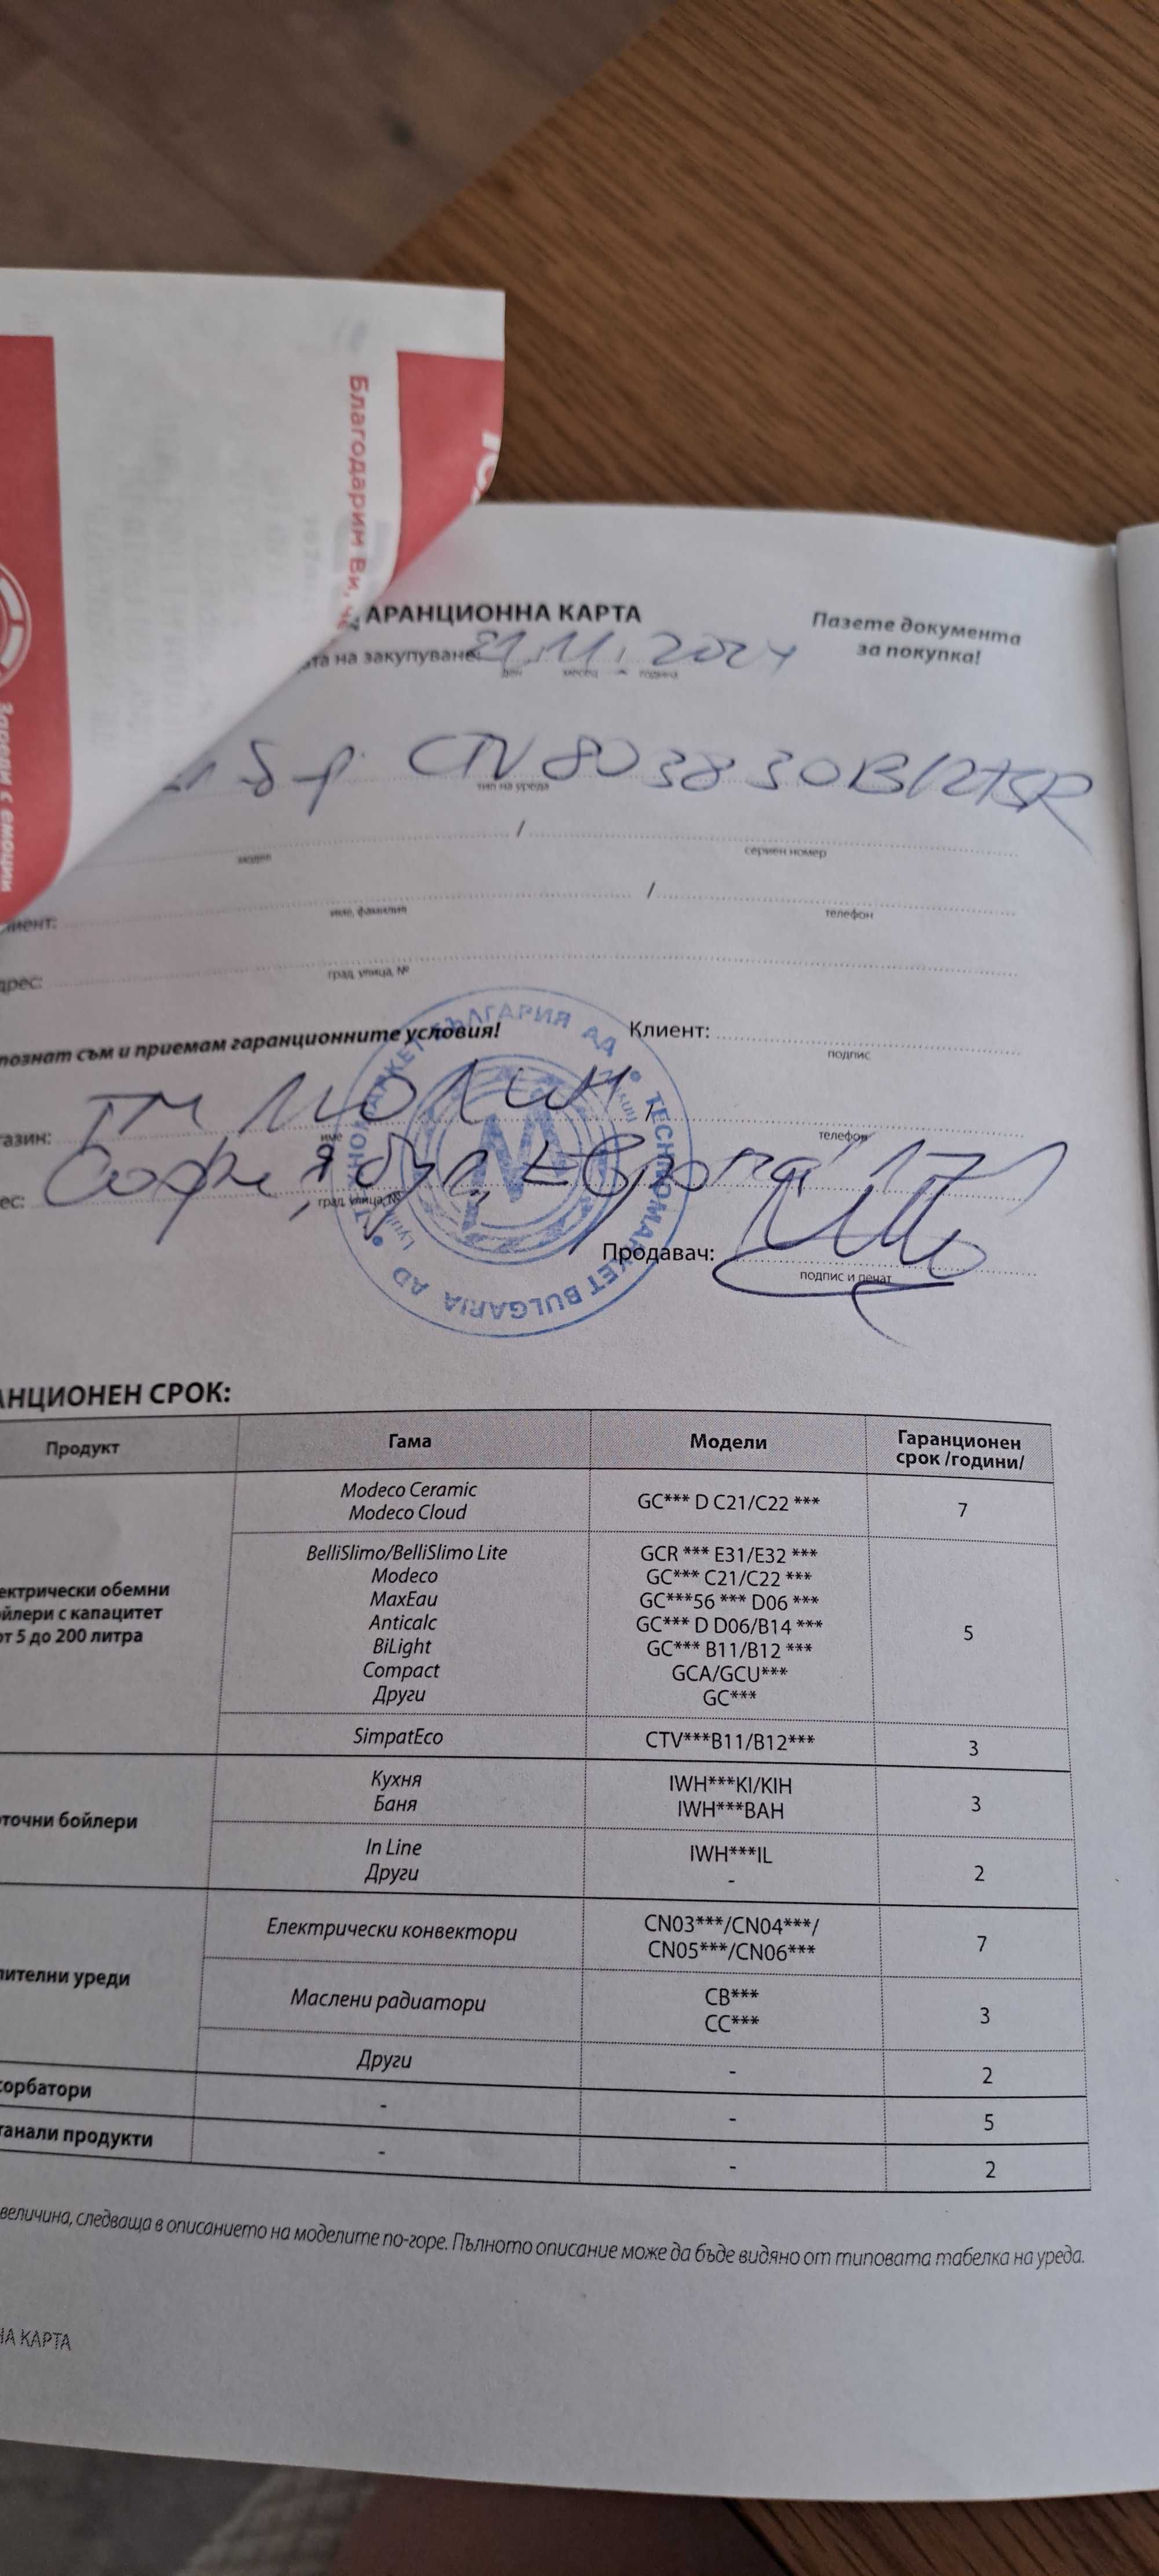 Благодарим Ви, че
Зареди с емоции
АРАНЦИОННА КАРТА
Пазете документа
за покупка!
та на закупуване: 21.11.2024
ден месец година
CTV803830B12TSR
тип на уреда
/
модел сериен номер
иент: /
име, фамилия телефон
дрес:
град, улица, №
познат съм и приемам гаранционните условия!
Клиент:
подпис
газин: ТМ МОЛИН,
име телефон
ес: София, бул, Европа
град, улица, №
Продавач:
подпис и печат
ТЕХНОМАРКЕТ БЪЛГАРИЯ АД • TECHNOMARKET BULGARIA AD •
M
АНЦИОНЕН СРОК:
Продукт Гама Модели Гаранционен
срок /години/
Modeco Ceramic
Modeco Cloud
GC*** D C21/C22 ***
7
ектрически обемни
йлери с капацитет
от 5 до 200 литра
BelliSlimo/BelliSlimo Lite GCR *** E31/E32 ***
Modeco GC*** C21/C22 ***
MaxEau GC***56 *** D06 ***
Anticalc GC*** D D06/B14 ***
BiLight GC*** B11/B12 ***
Compact GCA/GCU***
Други GC***
5
SimpatEco CTV***B11/B12*** 3
оточни бойлери
Кухня IWH***KI/KIH
Баня IWH***BAH
3
In Line IWH***IL
Други -
2
лителни уреди
Електрически конвектори
CN03***/CN04***/
CN05***/CN06***
7
Маслени радиатори
CB***
CC***
3
Други - 2
сорбатори - - 5
танали продукти - - 2
величина, следваща в описанието на моделите по-горе. Пълното описание може да бъде видяно от типовата табелка на уреда.
НА КАРТА